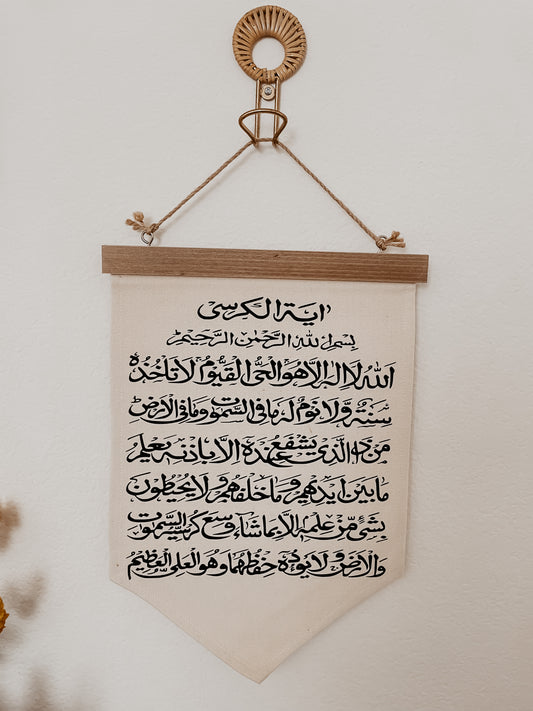 اٰية الكرسى
بِسْمِ اللهِ الرَّحْمٰنِ الرَّحِيْمِ
اَللهُ لَا اِلٰهَ اِلَّا هُوَ الْحَىُّ الْقَيُّوْمُ لَا تَاْخُذُهٗ
سِنَةٌ وَّلَا نَوْمٌ لَهٗ مَا فِى السَّمٰوٰتِ وَمَا فِى الْاَرْضِ
مَنْ ذَا الَّذِىْ يَشْفَعُ عِنْدَهٗ اِلَّا بِاِذْنِهٖ يَعْلَمُ
مَا بَيْنَ اَيْدِيْهِمْ وَمَا خَلْفَهُمْ وَلَا يُحِيْطُوْنَ
بِشَىْءٍ مِّنْ عِلْمِهٖ اِلَّا بِمَا شَاءَ وَسِعَ كُرْسِيُّهُ السَّمٰوٰتِ
وَالْاَرْضَ وَلَا يَئُوْدُهٗ حِفْظُهُمَا وَهُوَ الْعَلِىُّ الْعَظِيْمُ